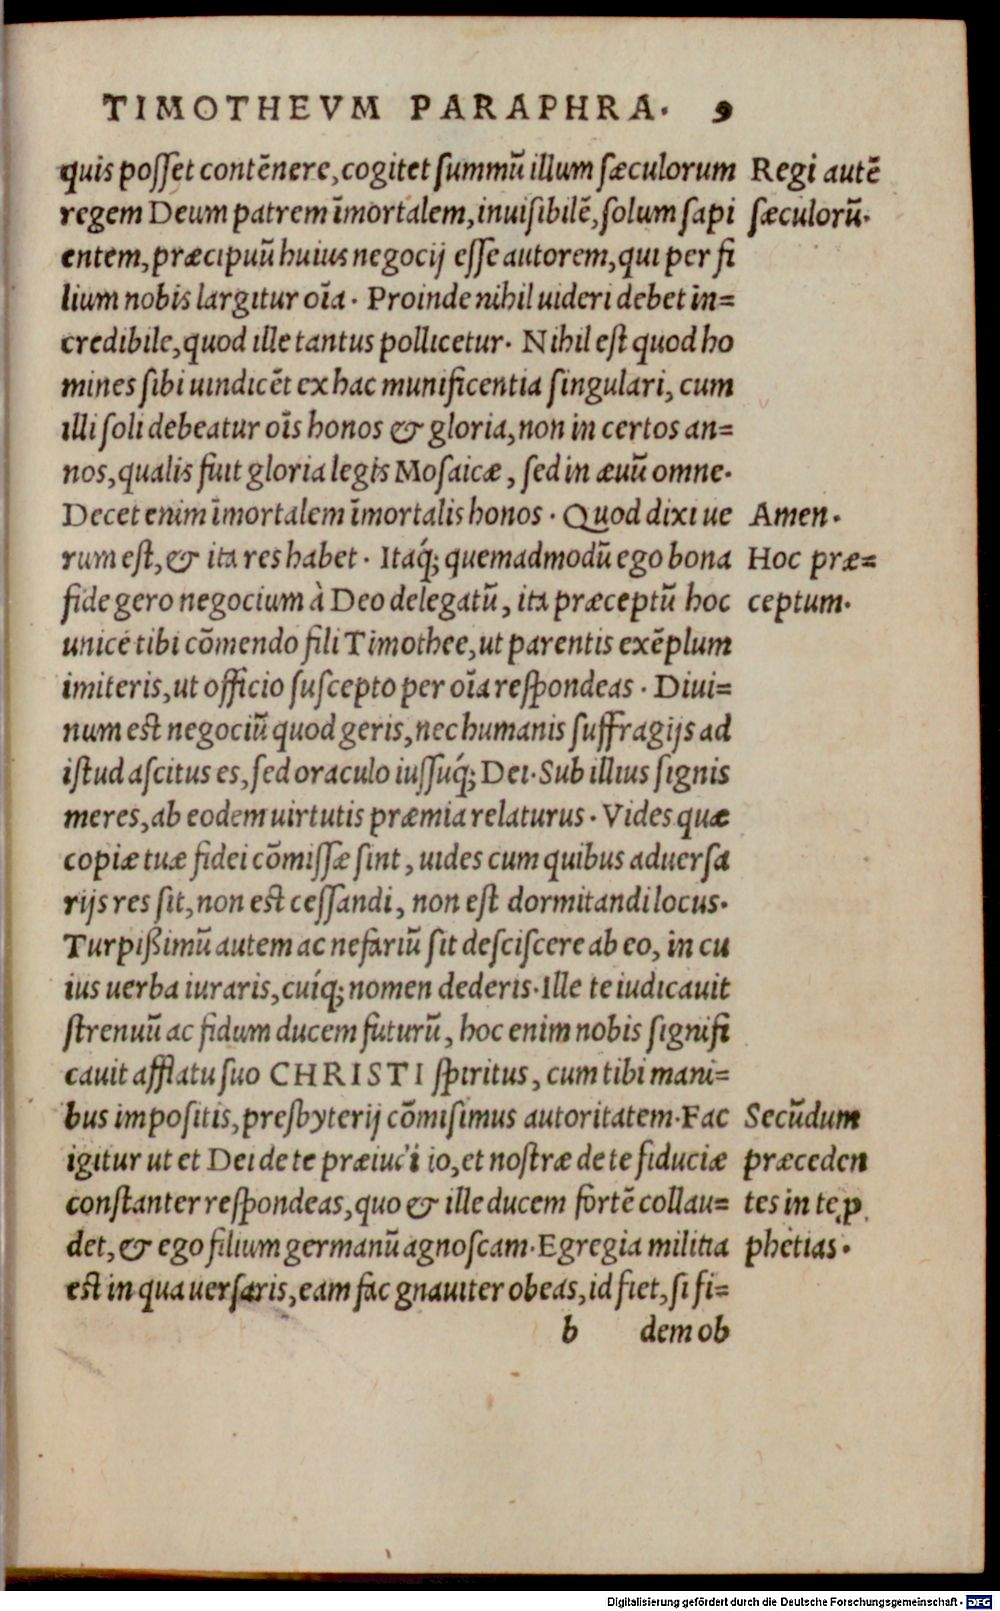 TIMOTHEVM PARAPHRA. 9
quis posset contēnere, cogitet summū illum sæculorum
regem Deum patrem īmortalem, inuisibilē, solum sapi
entem, præcipuū huius negocij esse autorem, qui per fi
lium nobis largitur oīa. Proinde nihil uideri debet in=
credibile, quod ille tantus pollicetur. Nihil est quod ho
mines sibi uindicēt ex hac munificentia singulari, cum
illi soli debeatur oīs honos & gloria, non in certos an=
nos, qualis fuit gloria legis Mosaicæ, sed in æuū omne.
Decet enim īmortalem īmortalis honos. Quod dixi ue
rum est, & ita res habet. Itaq́; quemadmodū ego bona
fide gero negocium à Deo delegatū, ita præceptū hoc
unice tibi cōmendo fili Timothee, ut parentis exēplum
imiteris, ut officio suscepto per oīa respondeas. Diui=
num est negociū quod geris, nec humanis suffragijs ad
istud ascitus es, sed oraculo iussuq́; Dei. Sub illius signis
meres, ab eodem uirtutis præmia relaturus. Vides quæ
copiæ tuæ fidei cōmissæ sint, uides cum quibus aduersa
rijs res sit, non est cessandi, non est dormitandi locus.
Turpißimū autem ac nefariū sit desciscere ab eo, in cu
ius uerba iuraris, cuíq; nomen dederis. Ille te iudicauit
strenuū ac fidum ducem futurū, hoc enim nobis signifi
cauit afflatu suo CHRISTI spiritus, cum tibi mani=
bus impositis, presbyterij cōmisimus autoritatem. Fac
igitur ut et Dei de te præiuc'i io, et nostræ de te fiduciæ
constanter respondeas, quo & ille ducem fortē collau=
det, & ego filium germanū agnoscam. Egregia militia
est in qua uersaris, eam fac gnauiter obeas, id fiet, si fi=
b demob
Regi autē
sæculorū.
Amen.
Hoc præ=
ceptum.
Secūdum
præceden
tes in te ꝓ
phetias.
Digitalisierung gefördert durch die Deutsche Forschungsgemeinschaft - DFG